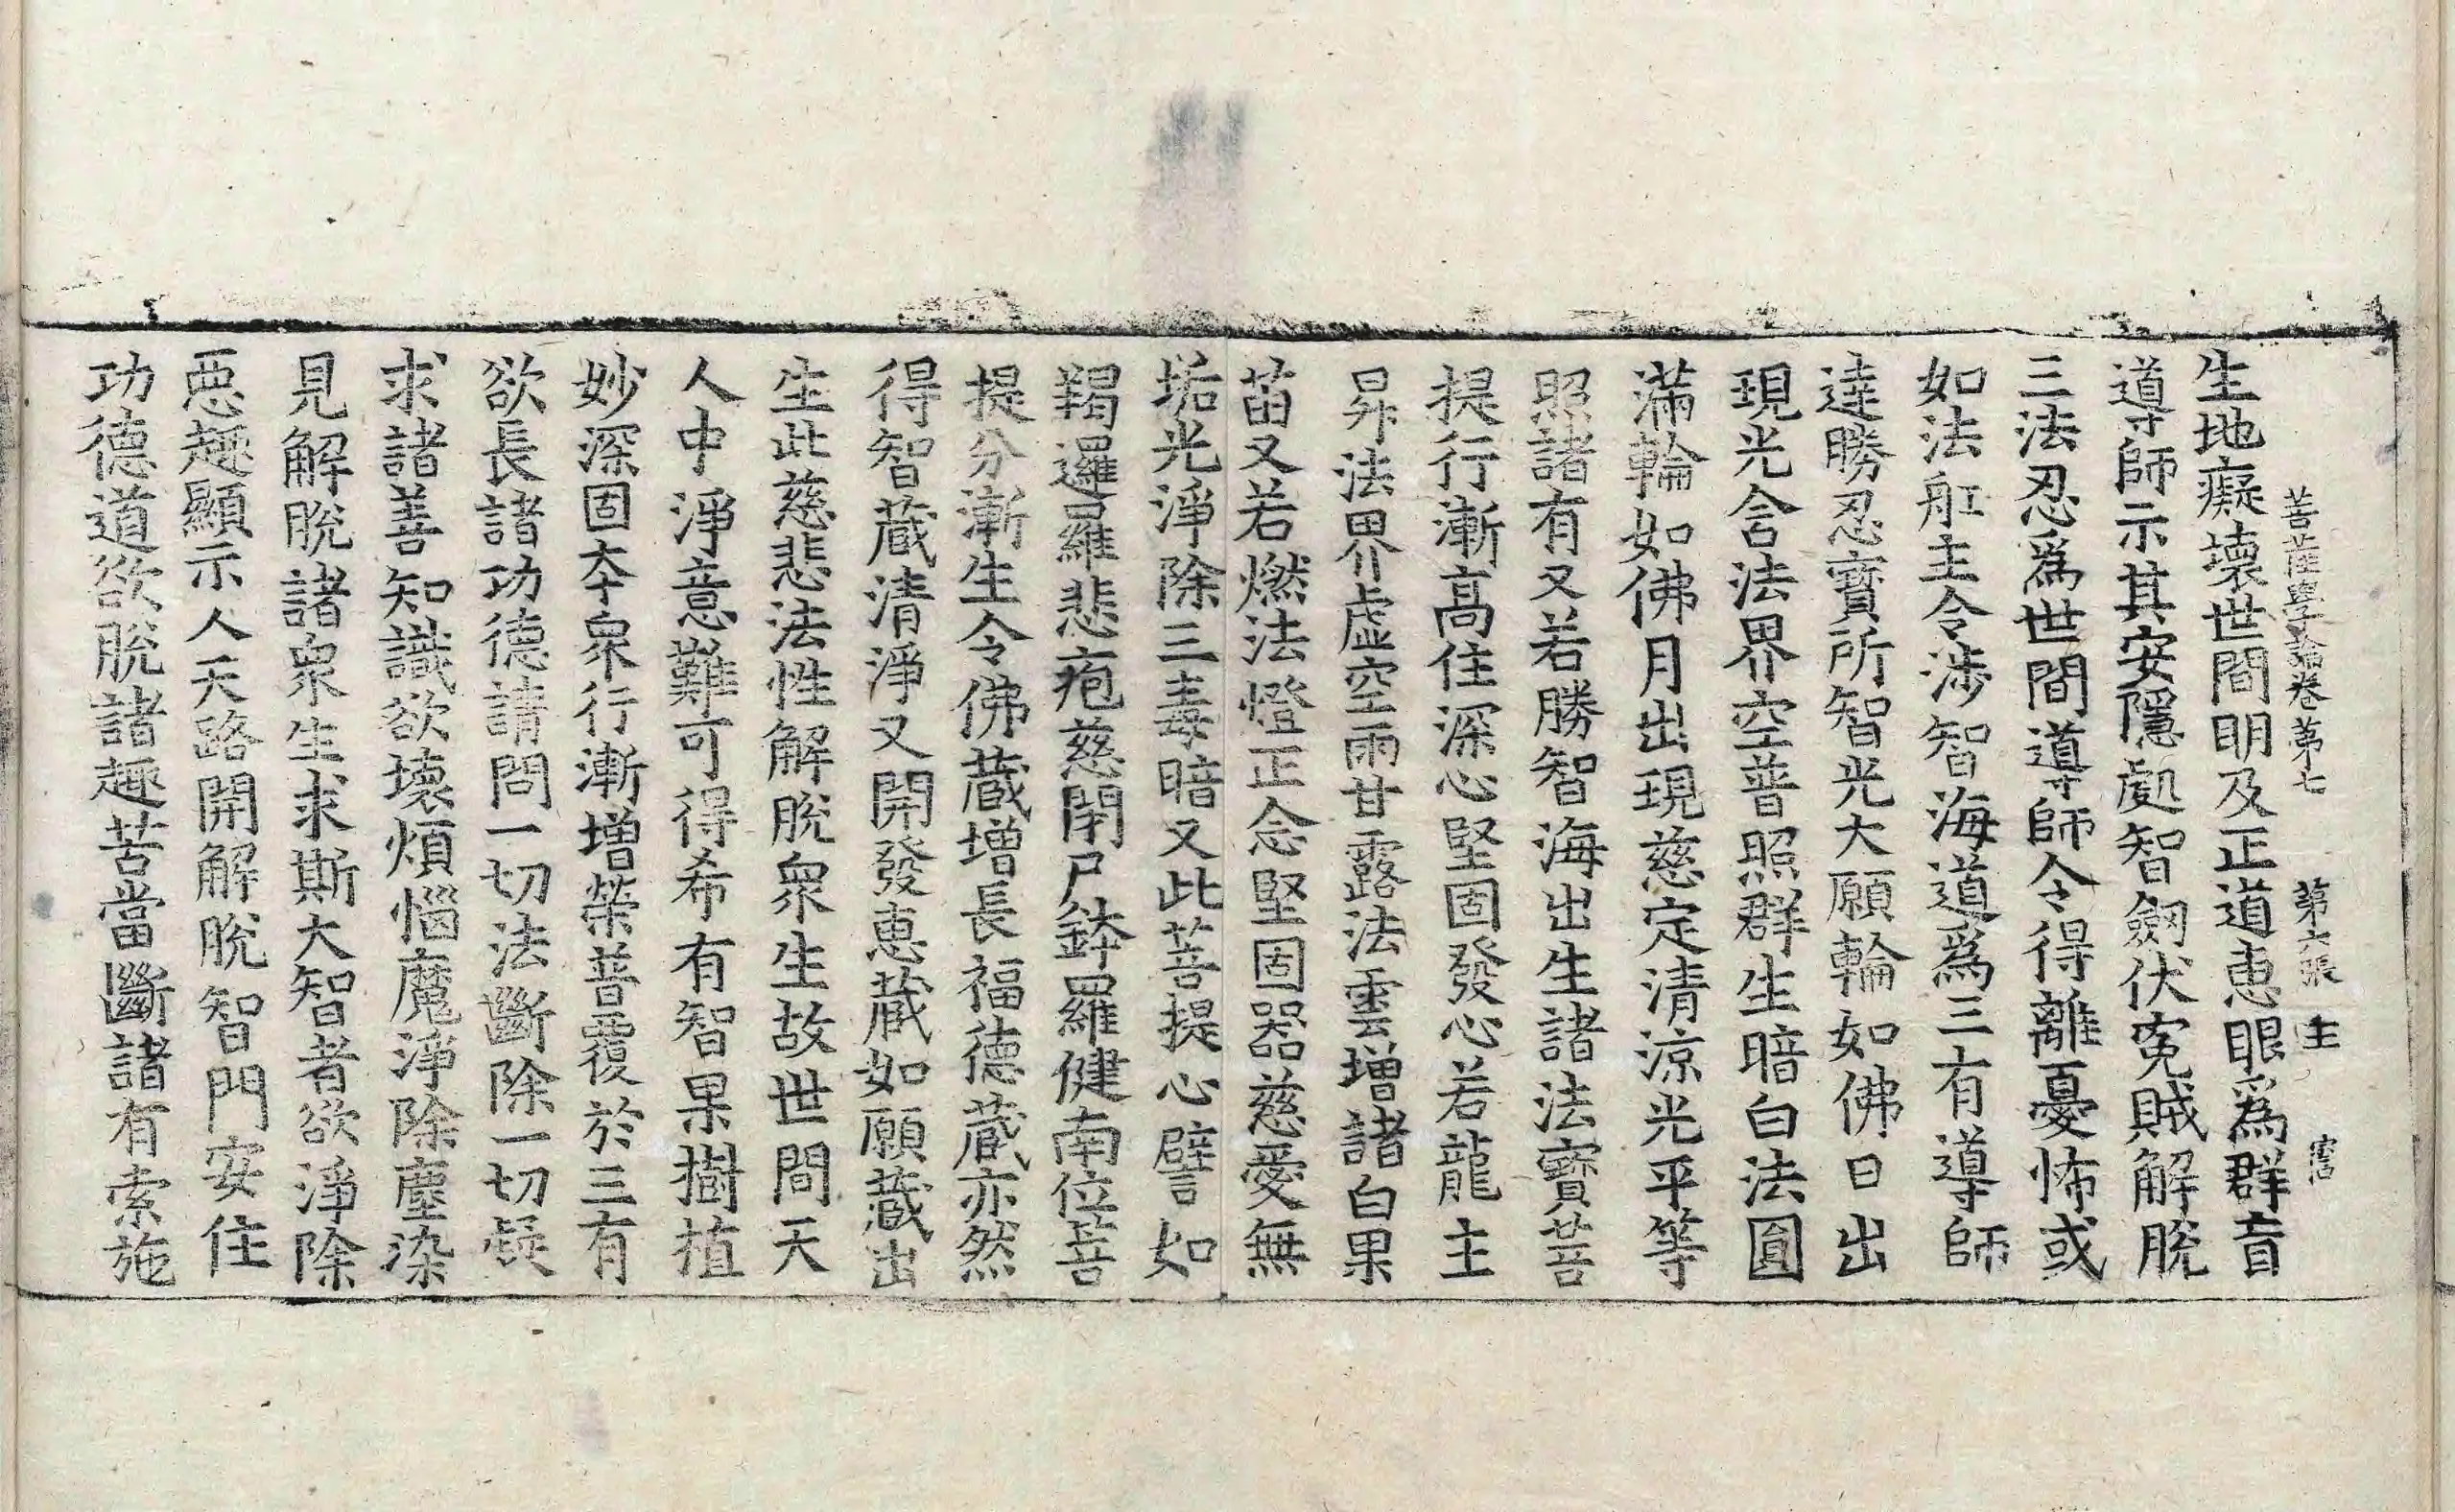 菩薩學論卷第七　第六張　主
生地癡壞世間明及正道惠眼爲群盲
導師示其安隱處智劔伏寃賊解脫
三法忍爲世間導師令得離憂怖或
如法舡主令涉智海道爲三有導師
達勝忍寶所智光大願輪如佛日出
現光含法界空普照群生暗白法圓
滿輪如佛月出現慈定清涼光平等
照諸有又若勝智海出生諸法寶菩
提行漸高住深心堅固發心若龍主
昇法界虛空雨甘露法雲增諸白果
苗又若燃法燈正念堅固器慈愛無
垢光淨除三毒暗又此菩提心譬如
羯邏羅悲疱慈閉尸鉢羅健南位菩
提分漸生令佛藏增長福德藏亦然
得智藏清淨又開發惠藏如願藏出
生此慈悲法性解脫衆生故世間天
人中淨意難可得希有智果樹植
妙深固夲衆行漸增榮普覆於三有
欲長諸功德請問一切法斷除一切疑
求諸善知識欲壞煩惱魔淨除塵染
見解脫諸衆生求斯大智者欲淨除
惡趣顯示人天路開解脫智門安住
功德道欲脫諸趣苦當斷諸有索施